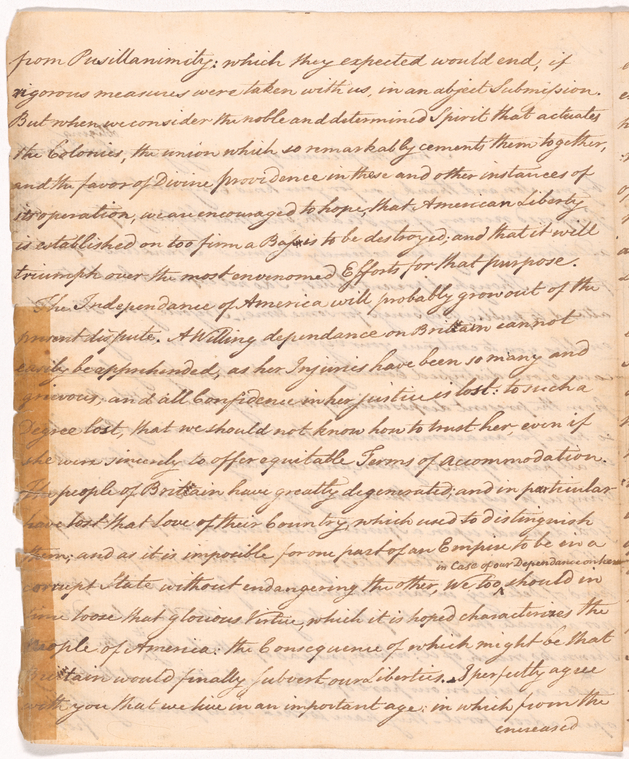 from Pusillanimity: which they expected would end, if
rigorous measures were taken with us, in an abject Submission.
But when we consider the noble and determined Spirit that actuates
the Colonies, the union which so remarkably cements them together,
and the favor of Divine providence in these and other instances of
its operation, we are encouraged to hope, that American Liberty
is established on too firm a Basis to be destroyed; and that it will
triumph over the most envenomed Efforts for that purpose.
The Independance of America will probably grow out of the
present dispute. A Willing dependance on Britain cannot
easily be apprehended, as her Injuries have been so many and
grievous; and all Confidence in her justice is lost: to such a
Degree lost, that we should not know how to trust her, even if
she were sincerely to offer equitable Terms of accommodation.
The people of Britain have greatly degenerated; and in particular
have lost that love of their Country, which used to distinguish
them; and as it is imposible for one part of an Empire to be in a
in Case of our Dependance on them
corrupt State without endangering the other, We too, should in
time loose that glorious Virtue, which it is hoped characterizes the
people of America: the Consequence of which might be that
Britain would finally subvert our Liberties. I perfectly agree
with you that we live in an important age: in which from the
increased